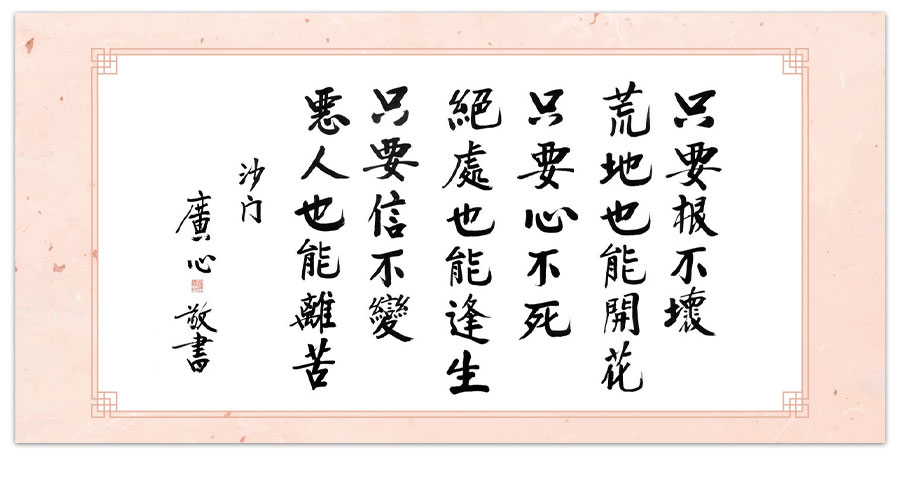 只要根不壞
荒地也能開花
只要心不死
絕處也能逢生
只要信不變
惡人也能離苦
沙门
廣心
敬書